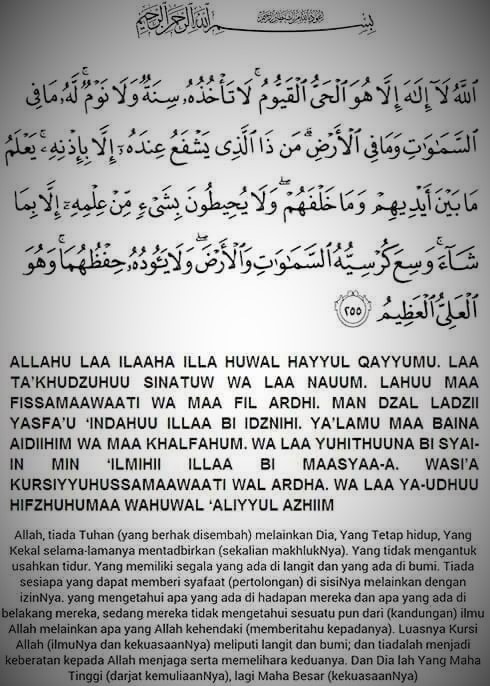 بِسْمِ ٱللَّهِ ٱلرَّحْمَٰنِ ٱلرَّحِيمِ
ٱللَّهُ لَآ إِلَٰهَ إِلَّا هُوَ ٱلْحَىُّ ٱلْقَيُّومُ ۚ لَا تَأْخُذُهُۥ سِنَةٌ وَلَا نَوْمٌ ۚ لَّهُۥ مَا فِى
ٱلسَّمَٰوَٰتِ وَمَا فِى ٱلْأَرْضِ ۗ مَن ذَا ٱلَّذِى يَشْفَعُ عِندَهُۥٓ إِلَّا بِإِذْنِهِۦ ۚ يَعْلَمُ
مَا بَيْنَ أَيْدِيهِمْ وَمَا خَلْفَهُمْ ۖ وَلَا يُحِيطُونَ بِشَىْءٍ مِّنْ عِلْمِهِۦٓ إِلَّا بِمَا
شَآءَ ۚ وَسِعَ كُرْسِيُّهُ ٱلسَّمَٰوَٰتِ وَٱلْأَرْضَ ۖ وَلَا يَـُٔودُهُۥ حِفْظُهُمَا ۚ وَهُوَ
ٱلْعَلِىُّ ٱلْعَظِيمُ ٢٥٥
ALLAHU LAA ILAAHA ILLA HUWAL HAYYUL QAYYUMU. LAA
TA'KHUDZUHUU SINATUW WA LAA NAUUM. LAHUU MAA
FISSAMAAWAATI WA MAA FIL ARDHI. MAN DZAL LADZII
YASFA'U 'INDAHUU ILLAA BI IDZNIHI. YA'LAMU MAA BAINA
AIDIIHIM WA MAA KHALFAHUM. WA LAA YUHITHUUNA BI SYAI-
IN MIN 'ILMIHII ILLAA BI MAASYAA-A. WASI'A
KURSIYYUHUSSAMAAWAATI WAL ARDHA. WA LAA YA-UDHUU
HIFZHUHUMAA WAHUWAL 'ALIYYUL AZHIIM
Allah, tiada Tuhan (yang berhak disembah) melainkan Dia, Yang Tetap hidup, Yang
Kekal selama-lamanya mentadbirkan (sekalian makhlukNya). Yang tidak mengantuk
usahkan tidur. Yang memiliki segala yang ada di langit dan yang ada di bumi. Tiada
sesiapa yang dapat memberi syafaat (pertolongan) di sisiNya melainkan dengan
izinNya. yang mengetahui apa yang ada di hadapan mereka dan apa yang ada di
belakang mereka, sedang mereka tidak mengetahui sesuatu pun dari (kandungan) ilmu
Allah melainkan apa yang Allah kehendaki (memberitahu kepadanya). Luasnya Kursi
Allah (ilmuNya dan kekuasaanNya) meliputi langit dan bumi; dan tiadalah menjadi
keberatan kepada Allah menjaga serta memelihara keduanya. Dan Dia lah Yang Maha
Tinggi (darjat kemuliaanNya), lagi Maha Besar (kekuasaanNya)